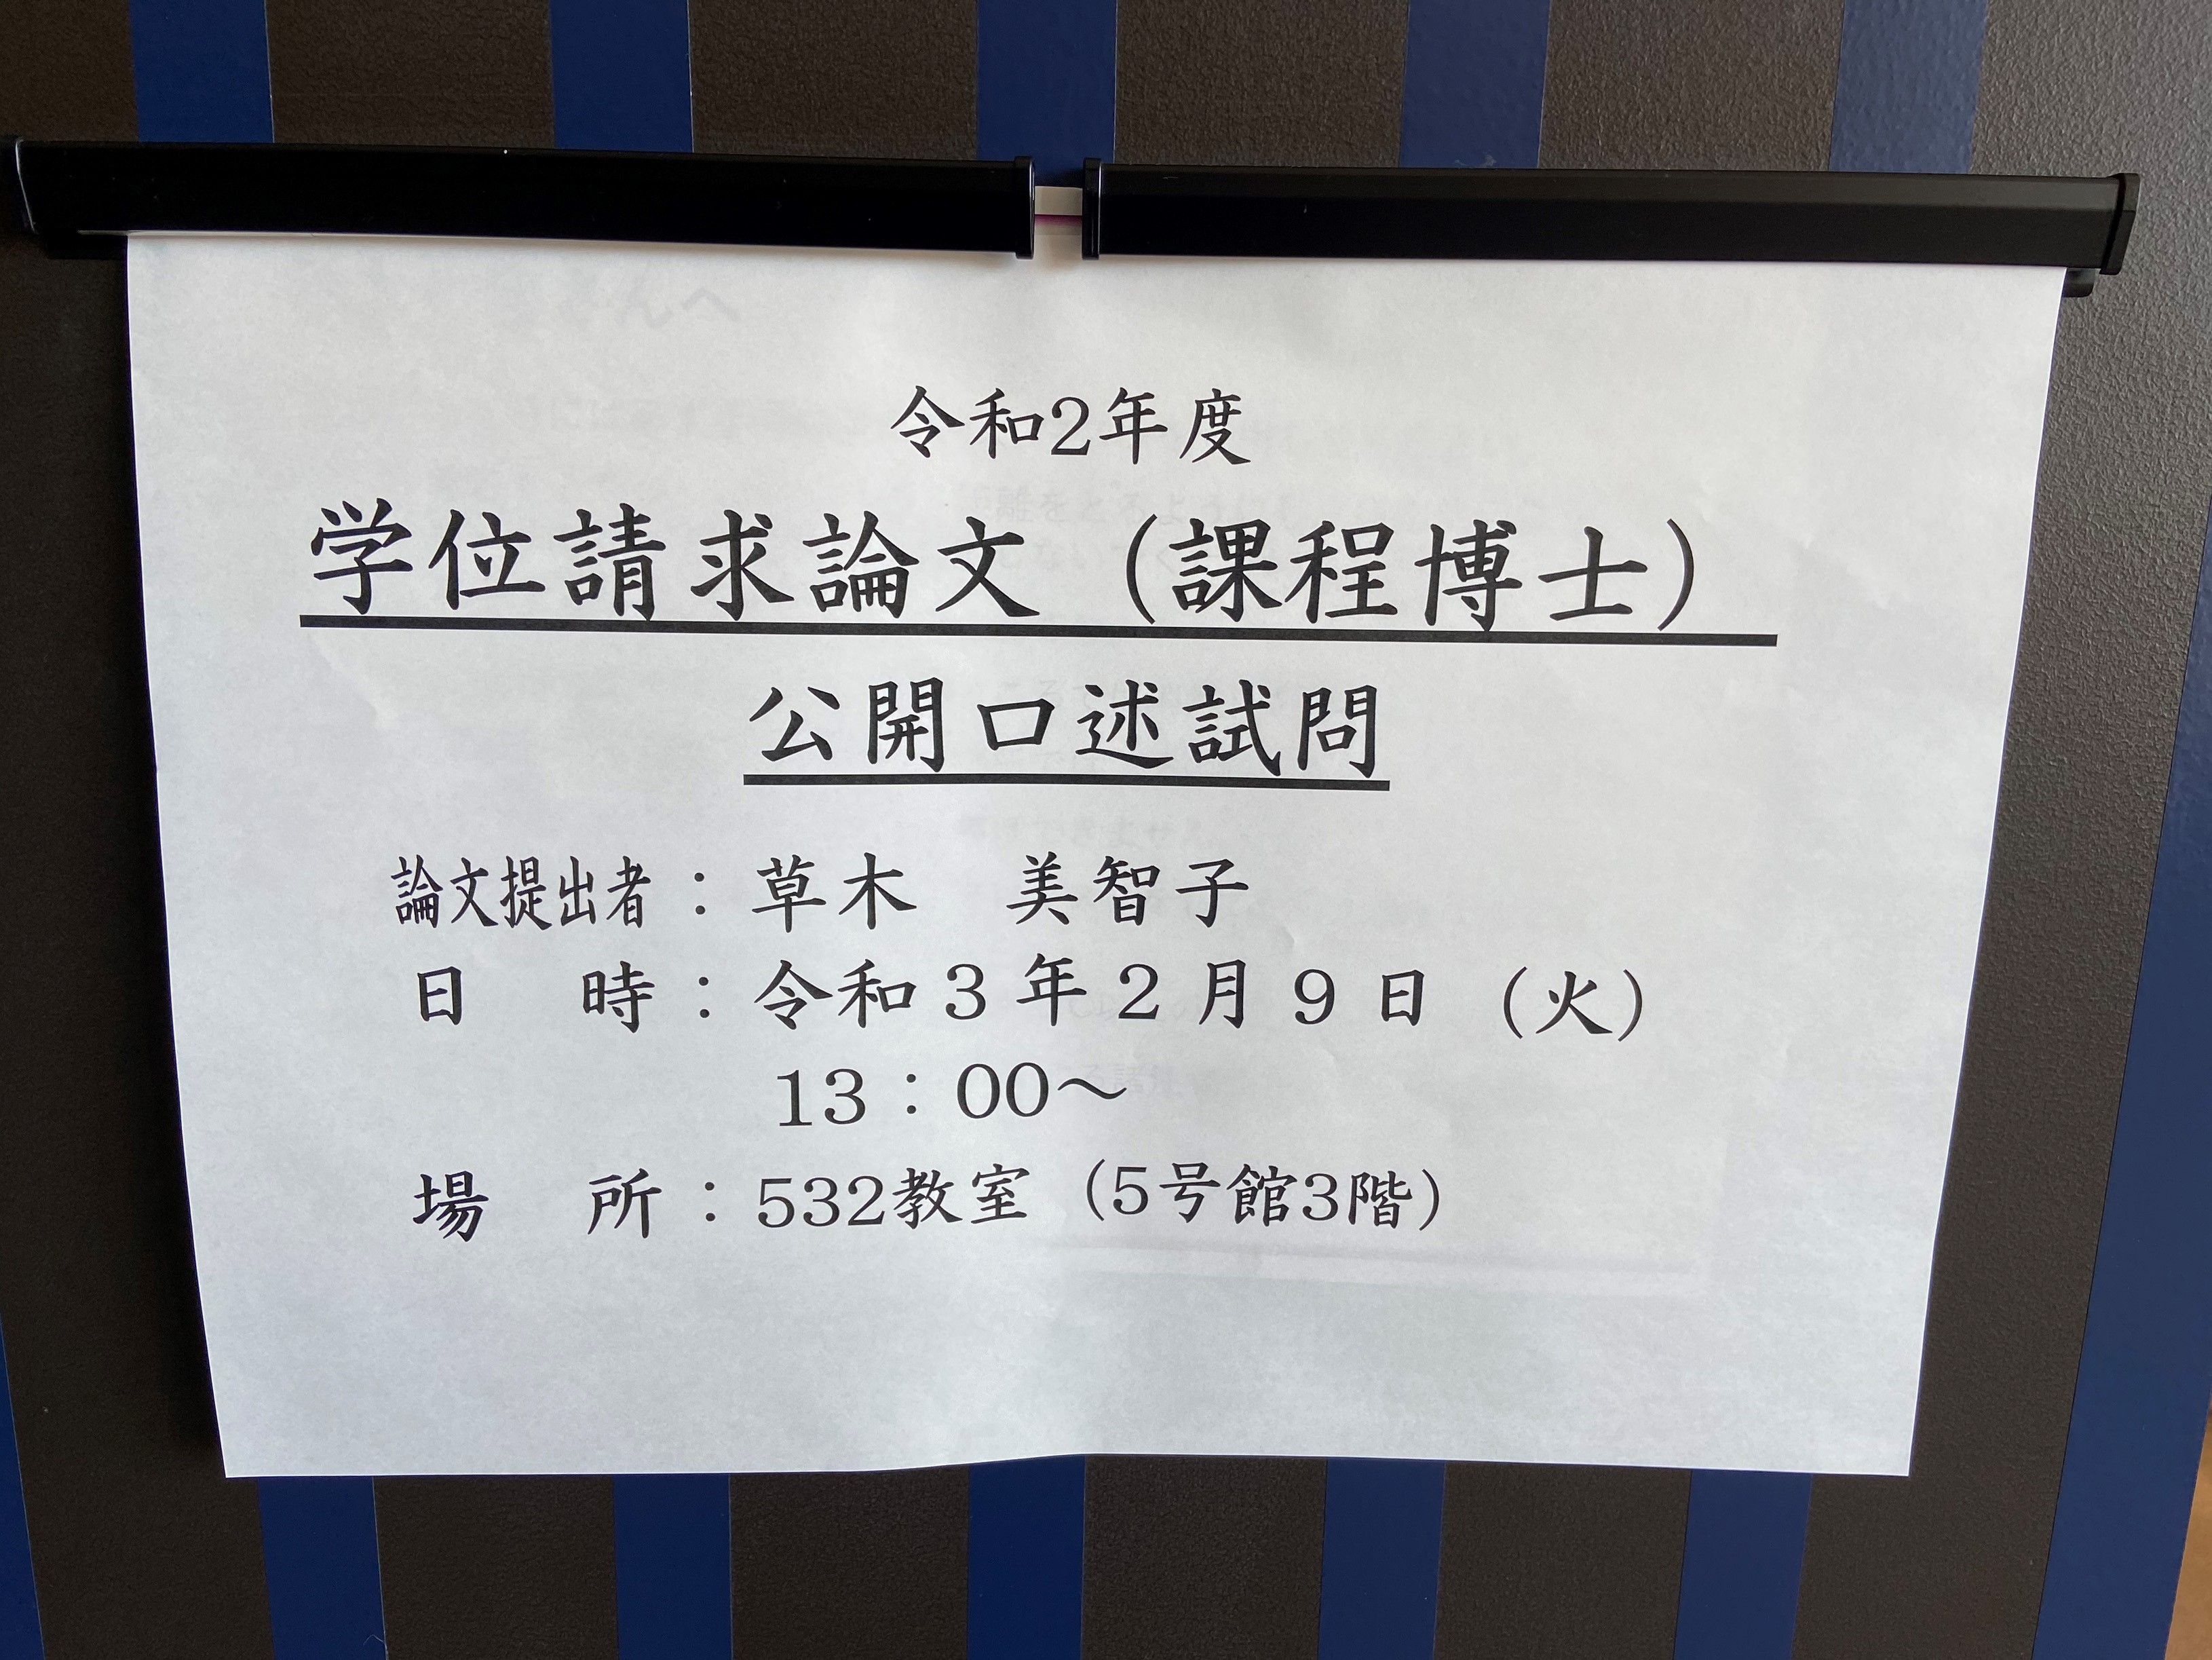 令和2年度
学位請求論文（課程博士）
公開口述試問
論文提出者：草木　美智子
日　時：令和３年２月９日（火）
13：00～
場　所：532教室（5号館3階）